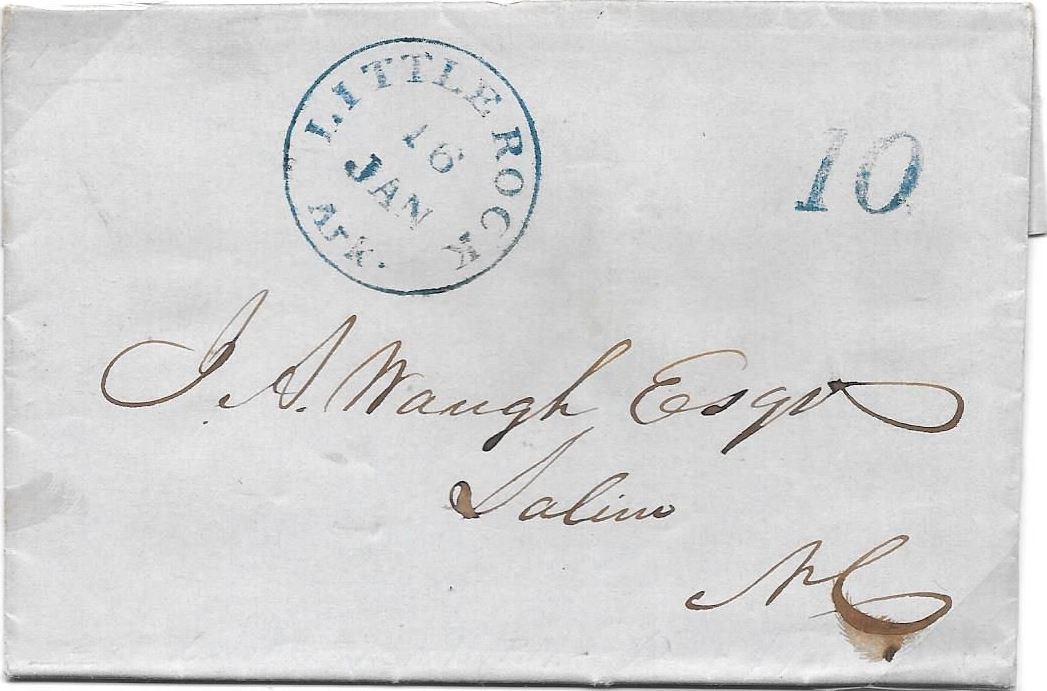 LITTLE ROCK
Ark.
16
JAN
10
J. A. Waugh Esqr
Salem
N C